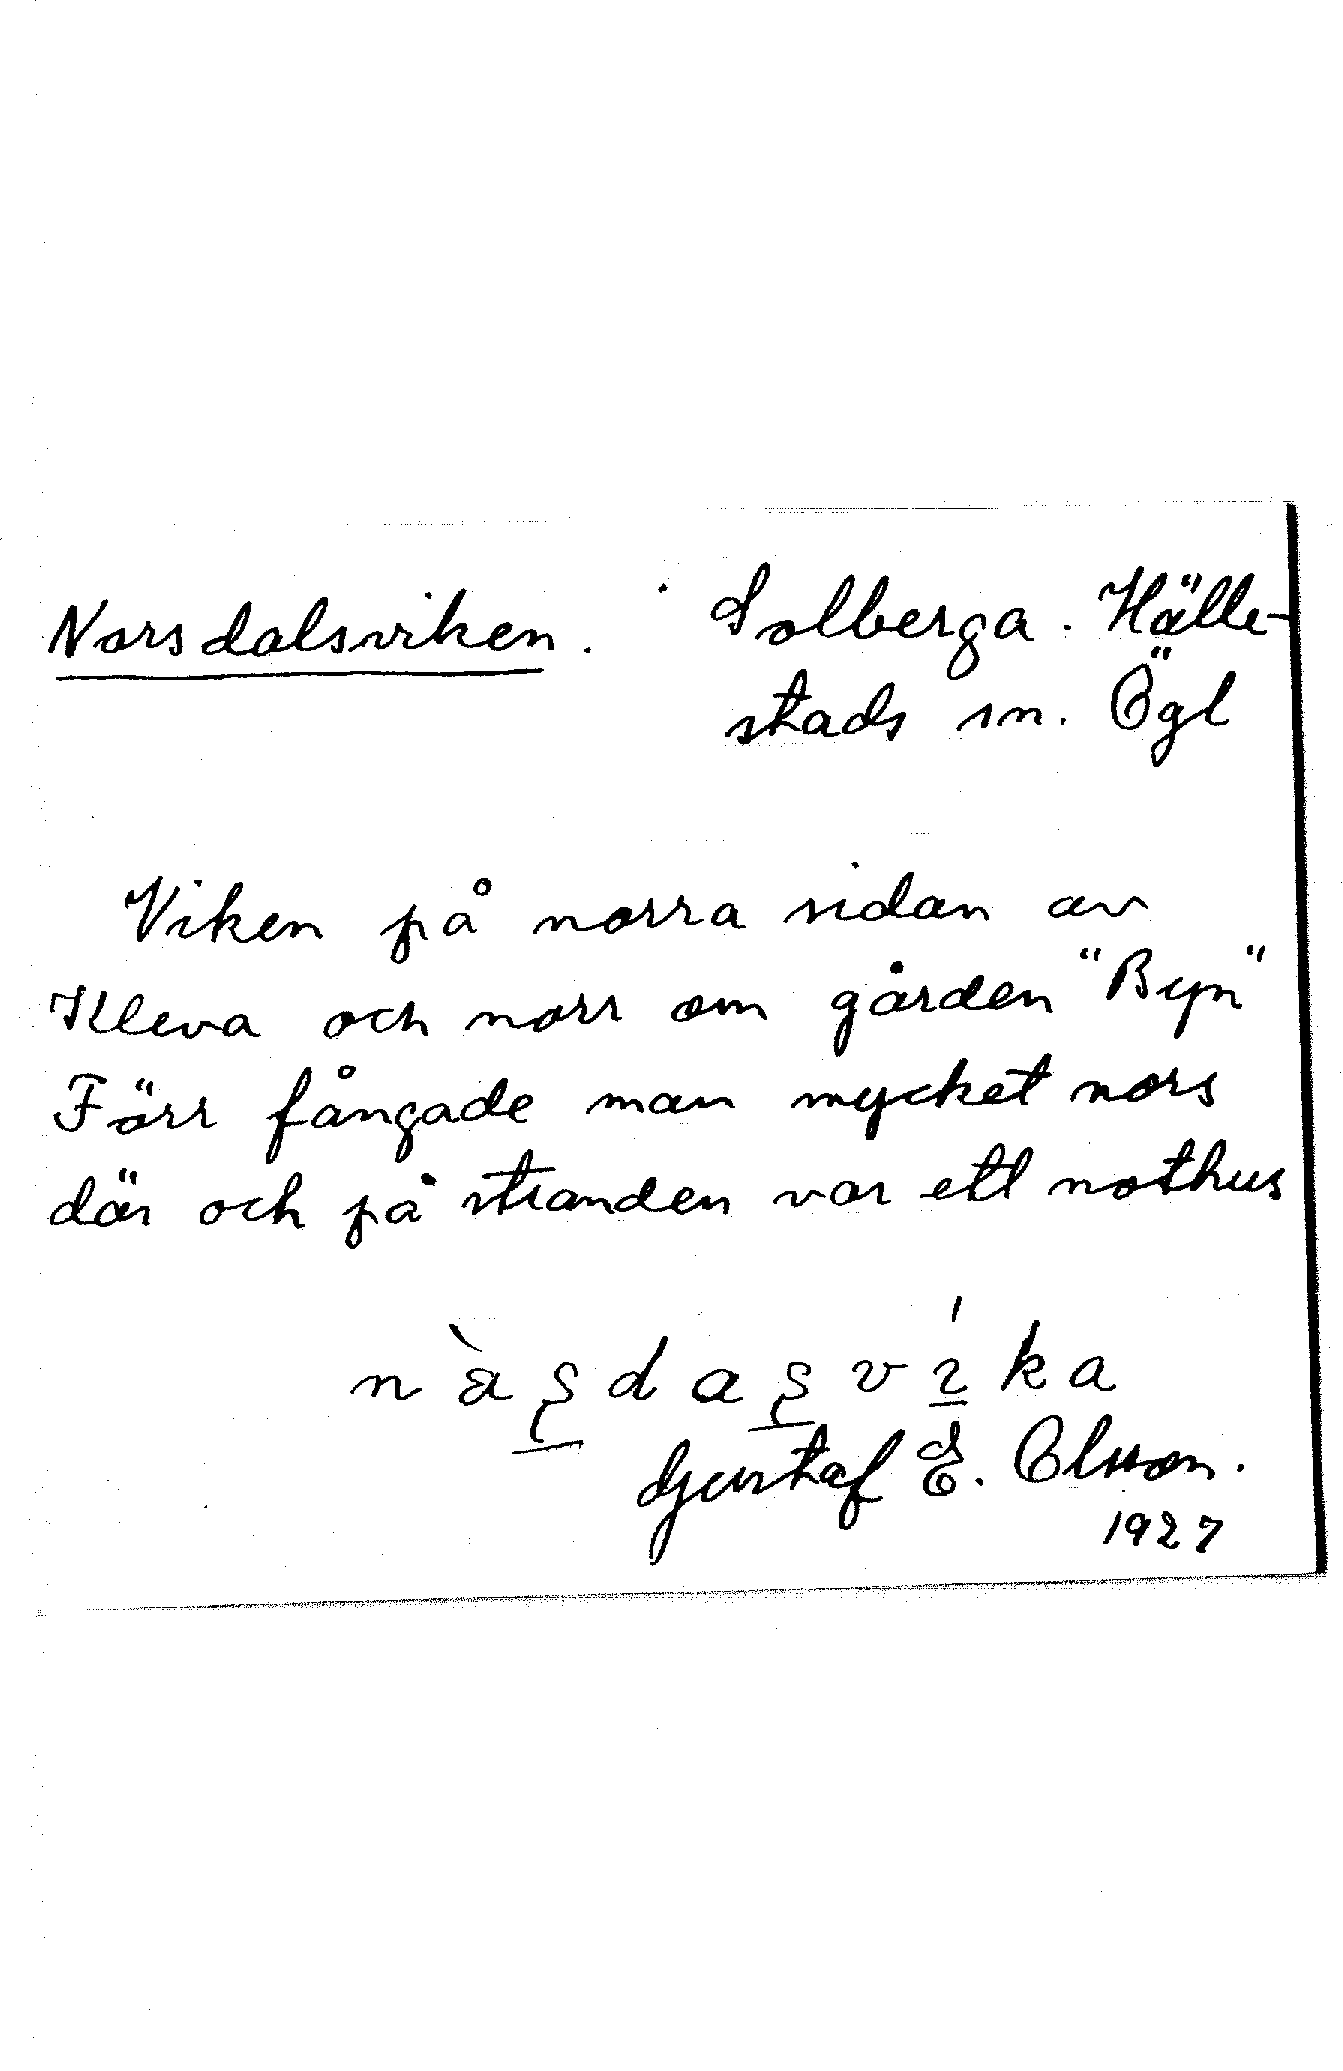 Norsdalsviken. Solberga. Hälle-
stads sn. Ögl
Viken på norra sidan av
Kleva och norr om gården "Byn"
Förr fångade man mycket nors
där och på stranden var ett nothus
Gustaf E. Olsson.
1927